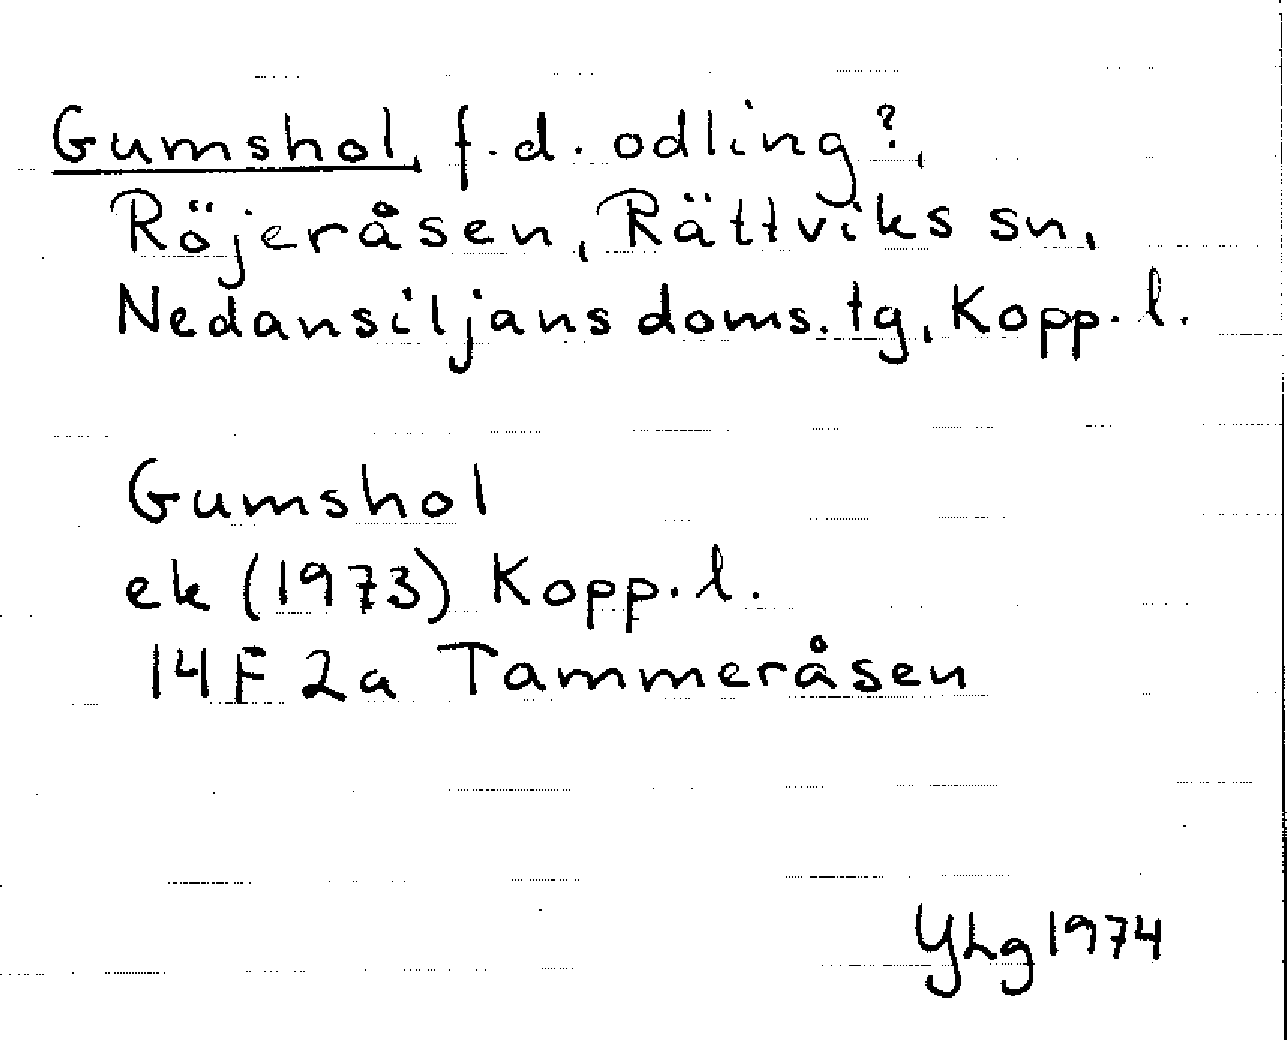 Gumshol, f.d. odling?,
Röjeråsen, Rättviks sn,
Nedansiljans doms.tg, Kopp.l.
Gumshol
ek (1973) Kopp.l.
14F 2a Tammeråsen
YLg 1974